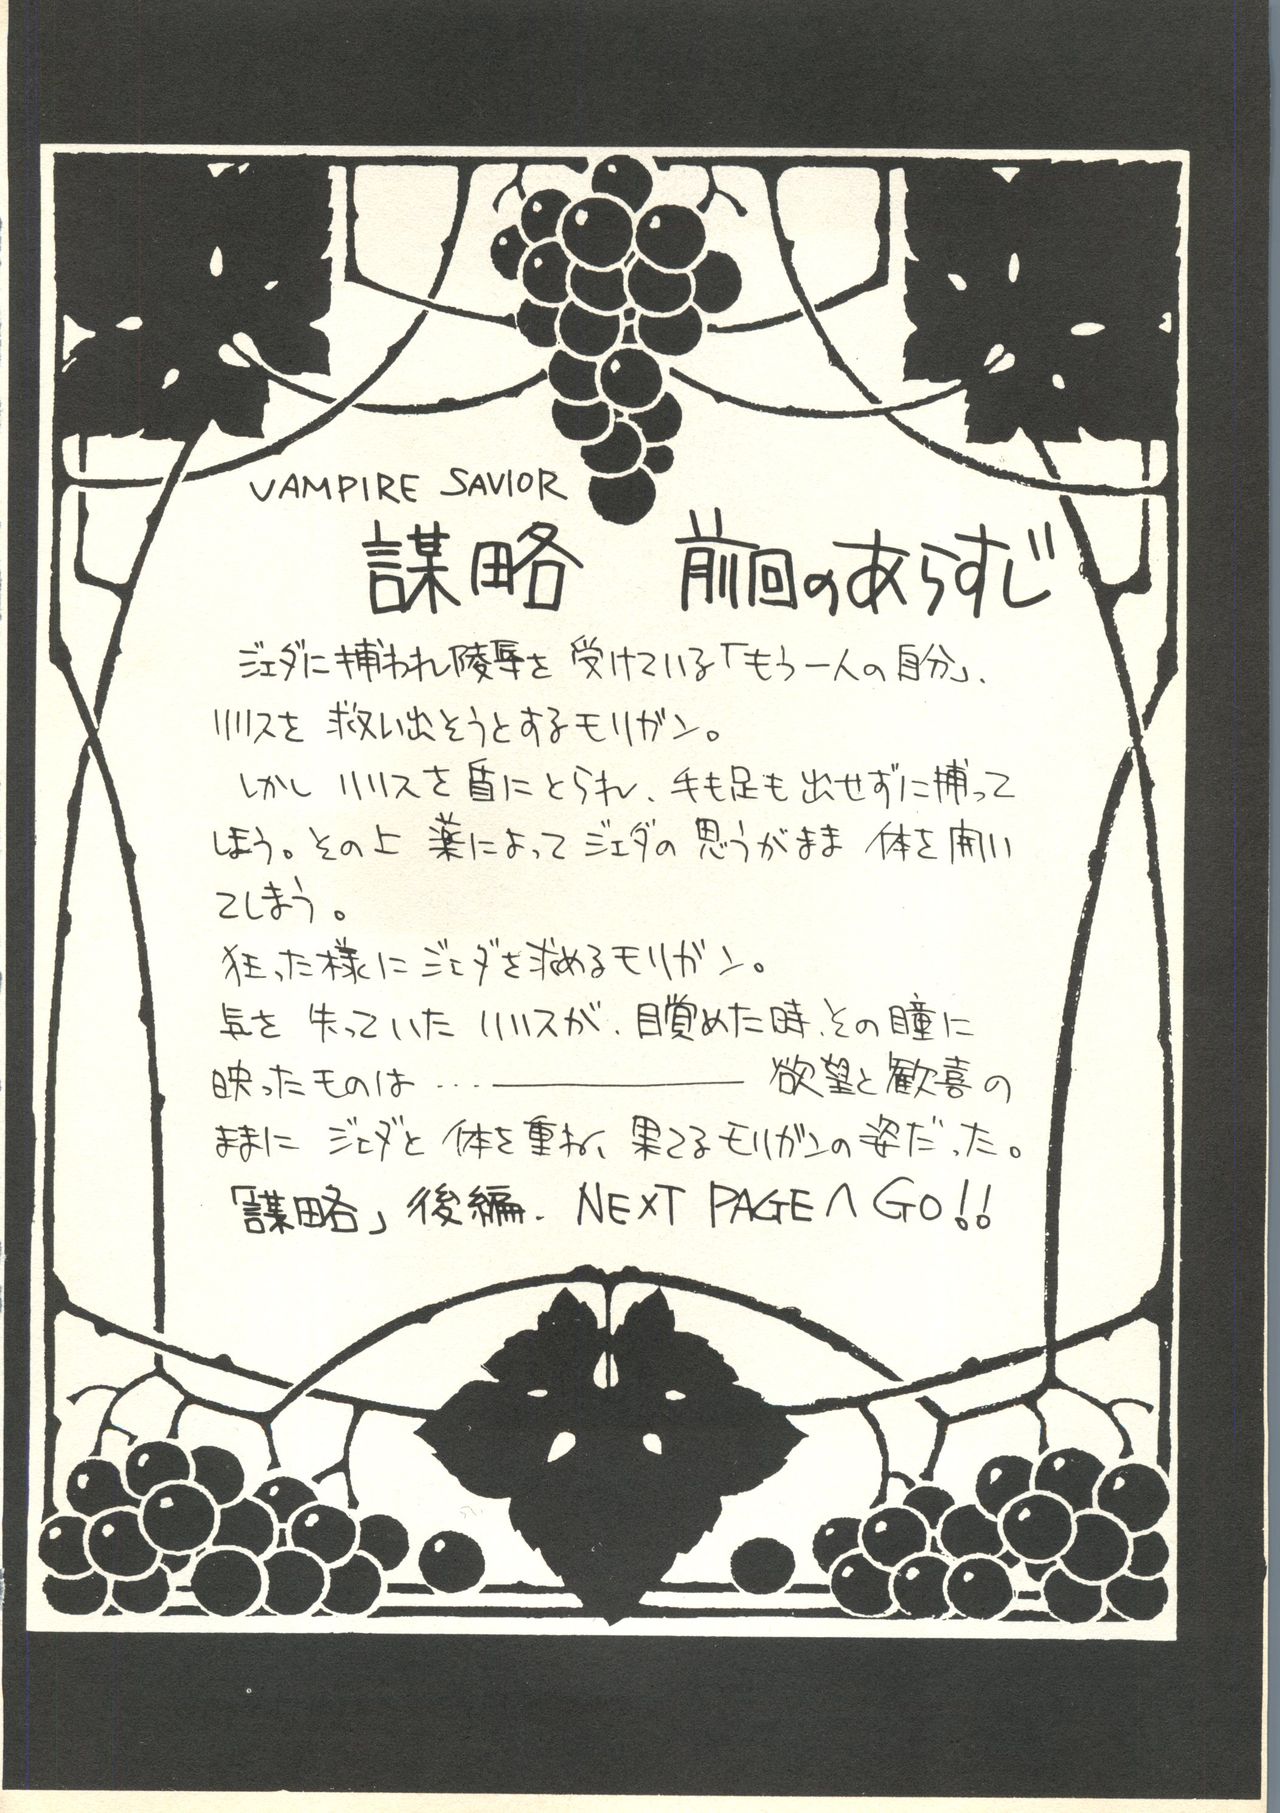 VAMPIRE SAVIOR
謀略 前回のあらすじ
ジェダに捕われ陵辱を受けている「もう一人の自分」、
リリスを救い出そうとするモリガン。
しかしリリスを盾にとられ、手も足も出せずに捕って
しまう。その上薬によってジェダの思うがまま体を開い
てしまう。
狂った様にジェダを求めるモリガン。
気を失っていたリリスが、目覚めた時、その瞳に
映ったものは‥‥――――欲望と歓喜の
ままにジェダと体を重ね、果てるモリガンの姿だった。
「謀略」後編、NEXT PAGEへGO!!